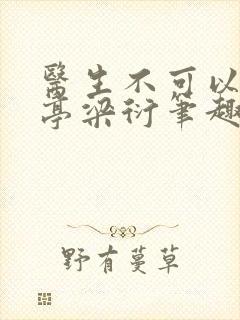 醫生不可以
亭梁衍筆趣
野有蔓草